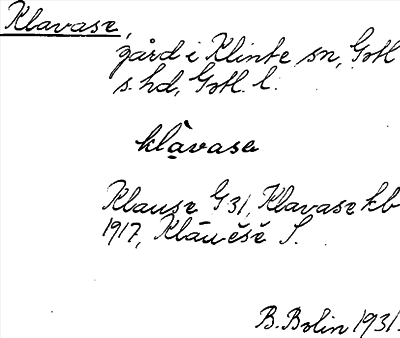 Klavase,
gård i Klinte sn, Gotl
s. hd, Gotl. l.
klàvasa
Klause G31, Klavase kb
1917, Klāu̯ĕsĕ S.
B. Bolin 1931.